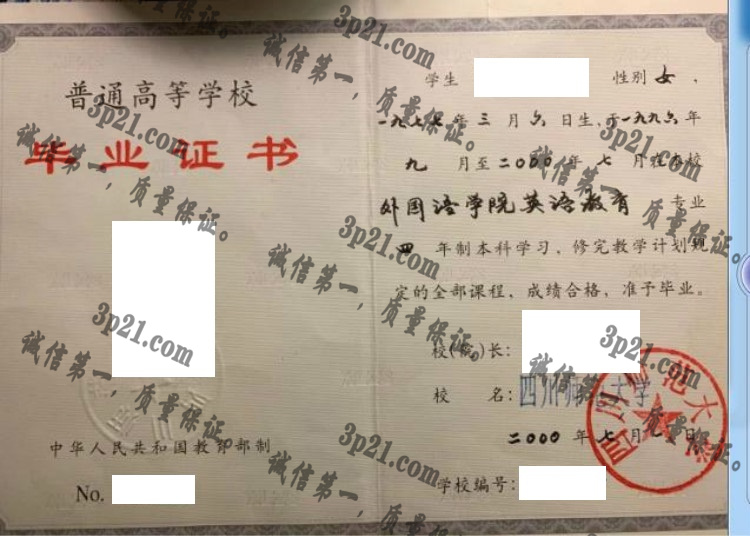 普通高等学校
毕业证书
中华人民共和国教育部制
No.
学生 性别 女 ，
一九七七年三月六日生，于一九九六年
九 月至二〇〇〇年七月在本校
外国语学院英语教育 专业
四 年制本科学习，修完教学计划规
定的全部课程，成绩合格，准予毕业。
校(院)长：
校 名：四川师范大学
二〇〇〇年七月一日
学校编号：
四川师范大学
3p21.com
诚信第一，质量保证。
3p21.com
诚信第一，质量保证。
3p21.com
诚信第一，质量保证。
3p21.com
诚信第一，质量保证。
3p21.com
诚信第一，质量保证。
3p21.com
诚信第一，质量保证。